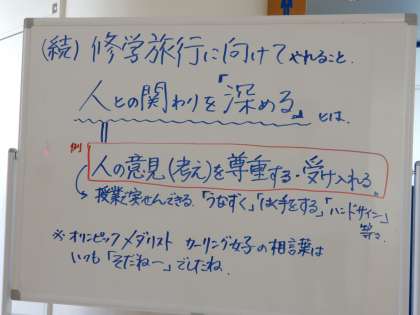 (続) 修学旅行に向けてやれること.
人との関わりを「深める」とは.
例
人の意見(考え)を尊重する・受け入れる.
授業で実せんできる. 「うなずく」「はく手をする」「ハンドサイン」
等っ
※オリンピックメダリスト カーリング女子の相言葉は
いつも「そだねー」でしたね.